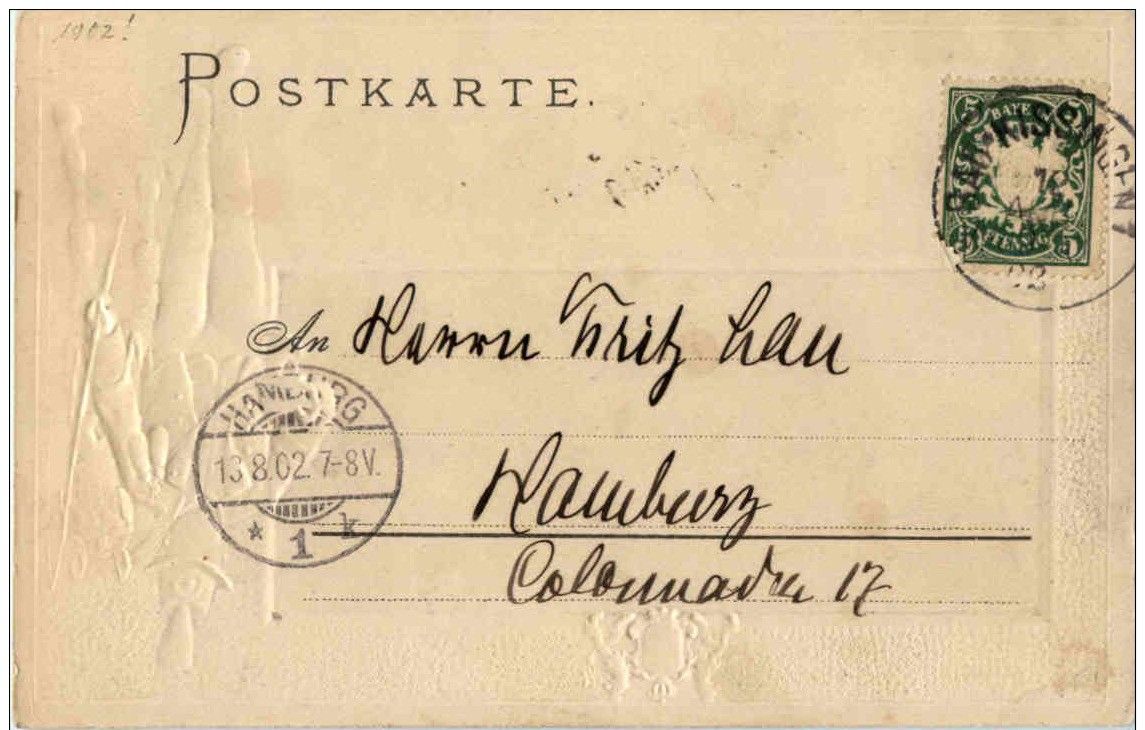 1902!
POSTKARTE.
5 5
BAYERN
PFENNIG 5
BAD KISSINGEN
02
An Herrn Fritz Lau
HAMBURG
13.8.02. 7-8V.
* 1 k
Hamburg
Colonnaden 17